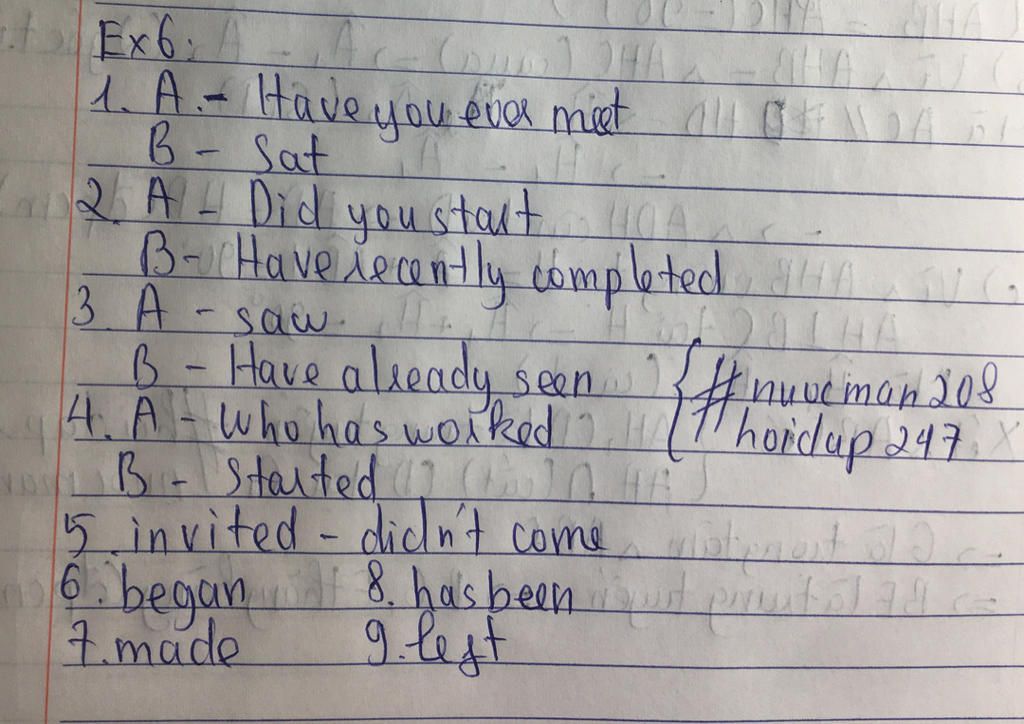 Ex6:
1. A. - Have you ever met
B - sat
2. A - Did you start
B - Have recently completed
3 A - saw
B - Have already seen { #nuocman208
4. A - Who has worked hoidap247
B - started
5. invited - didn't come
6. began 8. has been
7. made 9. left